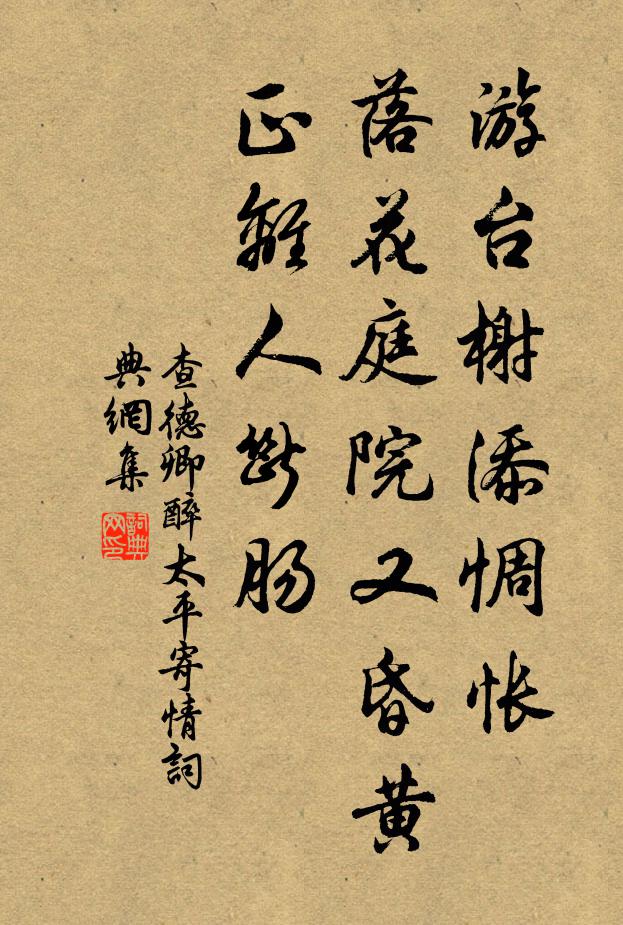 游台榭添惆怅
落花庭院又昏黄
正離人斷肠
查德卿醉太平寄情詞
典網集
詞典网印